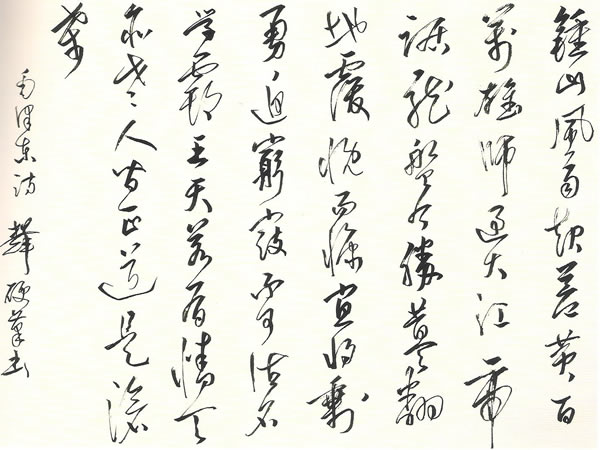 鍾山風雨起蒼黄百
萬雄師過大江虎
踞龍盤今勝昔天翻
地覆慨而慷宜將剩
勇追窮寇不可沽名
学霸王天若有情天
亦老人間正道是滄
桑
毛澤東詩 硬筆书